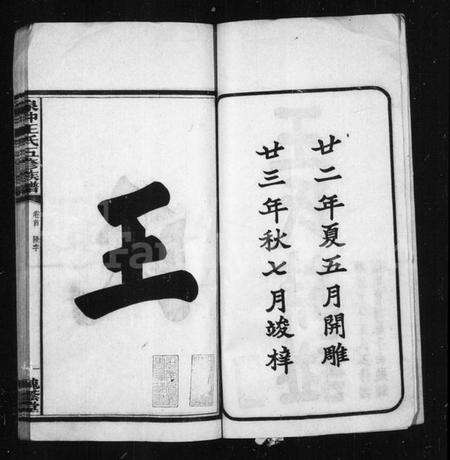 廿二年夏五月開雕
廿三年秋七月竣梓
王
泉冲王氏五修族譜
卷首